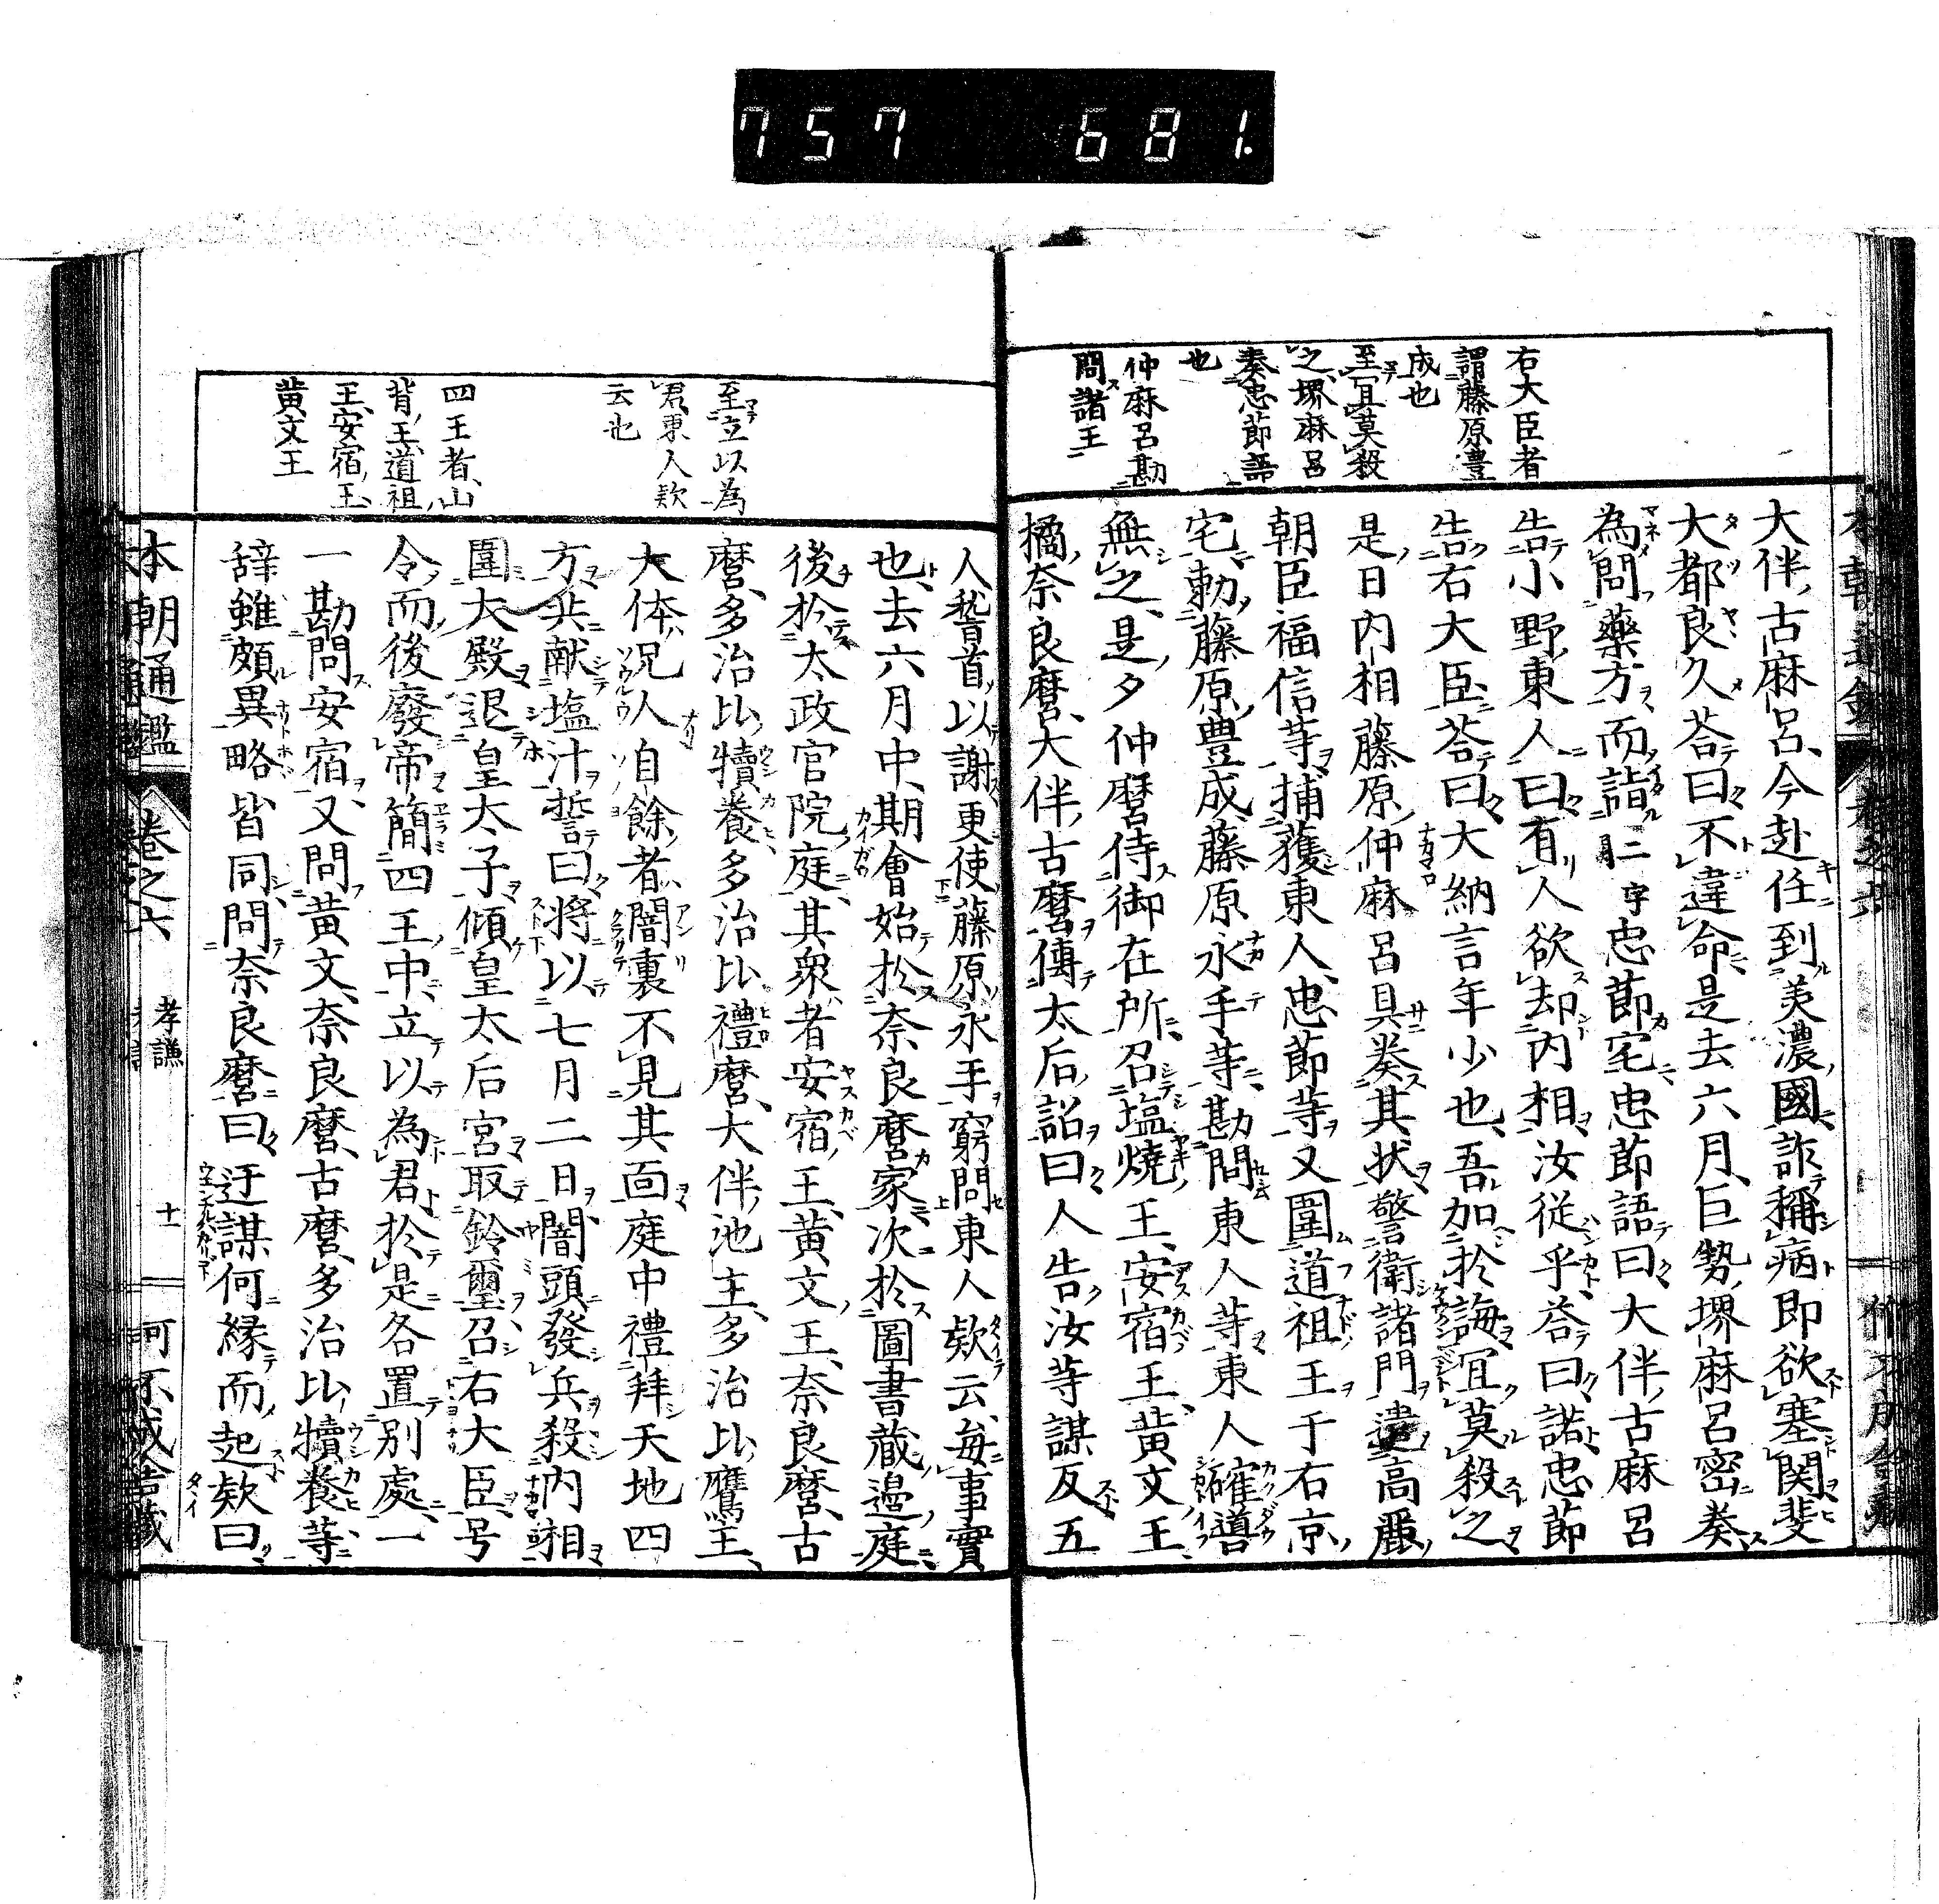 757 681.
右大臣者
謂藤原豊
成也
至宜莫殺
之堺麻呂
奏忠節語
也
仲麻呂勘
問諸王
大伴古麻呂、今赴任到美濃國、詐稱病即欲塞関斐
大都良久荅曰不違命是去六月、巨勢堺麻呂密奏
為問藥方而詣忠節宅忠節語曰大伴古麻呂
告小野東人曰有人欲却内相汝従乎荅曰諾忠節
告右大臣荅曰大納言年少也吾加於誨宜莫殺之
是日内相藤原仲麻呂具奏其状警衛諸門遣高麗
朝臣福信等捕獲東人忠節等又圍道祖王于右京
宅勅藤原豊成藤原永手等勘問東人等東人確噵
無之是夕仲麿侍御在所召塩燒王、安宿王、黄文王、
橘奈良麿、大伴古麿傳太后詔曰人告汝等謀反五
至立以為
君東人欵
云也
四王者、山
背王、道祖
王、安宿王、
黄文王
人誓首以謝更使藤原永手窮問東人欵云毎事實
也去六月中期會始於奈良麿家次於圖書藏邉庭
後於太政官院庭其衆者安宿王、黄文王、奈良麿、古
麿、多治比犢養、多治比禮麿、大伴池主、多治比鷹主、
大伴兄人自餘者闇裏不見其面庭中禮拜天地四
方共献塩汁誓曰將以七月二日闇頭發兵殺内相
圍大殿退皇太子傾皇太后宮取鈴璽召右大臣号
令而後廢帝簡四王中立以為君於是各置別處一
一勘問安宿又問黄文、奈良麿、古麿、多治比犢養等
辞雖頗異略皆同問奈良麿曰迂謀何縁而起欵曰
本朝通鑑
卷之六
孝謙
十